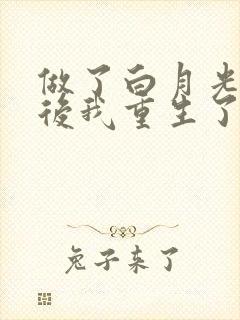 做了白月光
後我重生了
兔子来了